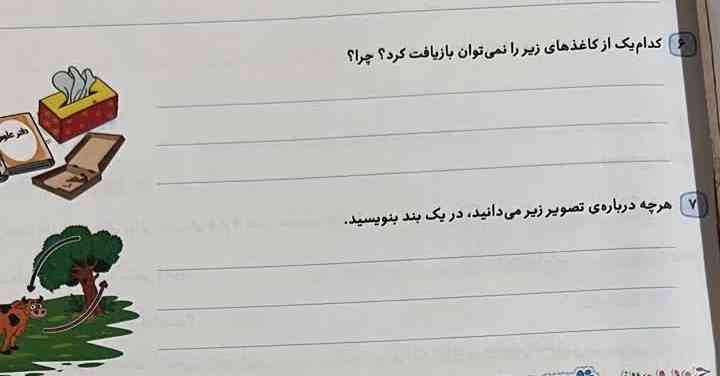 ۶ کدام‌یک از کاغذهای زیر را نمی‌توان بازیافت کرد؟ چرا؟
دفتر علوم
۷ هرچه درباره‌ی تصویر زیر می‌دانید، در یک بند بنویسید.